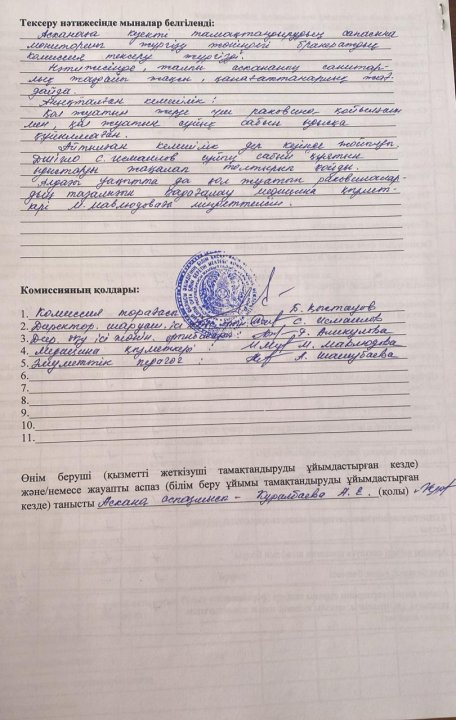 Тексеру нәтижесінде мыналар белгіленді:
Асханаға күнкті тамақтандырудың сапасына
мониторинг жүргізу жөніндегі бракераждық
комиссия тексеру жүргізді.
Нәтижесінде, жалпы асхананың санитар-
лық жағдайы жақсы, қанағаттанарлық жағ-
дайда.
Анықталған кемшілік:
Қол жуатын жерге үш раковина қойылған
мен, қол жуатын сұйық сабын
Айтылған кемшілік дер кезінде жойылып,
С. Исмаилов сұйық сабын құятын
ыдыстарын жаңалап толтырып қойды.
Алдағы уақытта да қол жуатын раковиналар-
дың тазалығын қадағалау медицина қызмет-
кері М. Мавлюдоваға міндеттелсін.
Комиссияның қолдары:
1. Комиссия төрағасы Б. Қоктауов
2. Директор. шаруаш. ісі С. Исмаилов
3. Дир. оқу ісі жөнін. орынбасары: Я. Аликулова
4. Медицина қызметкері: М. Мавлюдова
5. Әлеуметтік педагог: А. Шашубаева
6.
7.
8.
9.
10.
11.
Өнім беруші (қызметті жеткізуші тамақтандыруды ұйымдастырған кезде)
және/немесе жауапты аспаз (білім беру ұйымы тамақтандыруды ұйымдастырған
кезде) танысты Асхана аспазшысы - Куралбаева А. Е. (қолы)